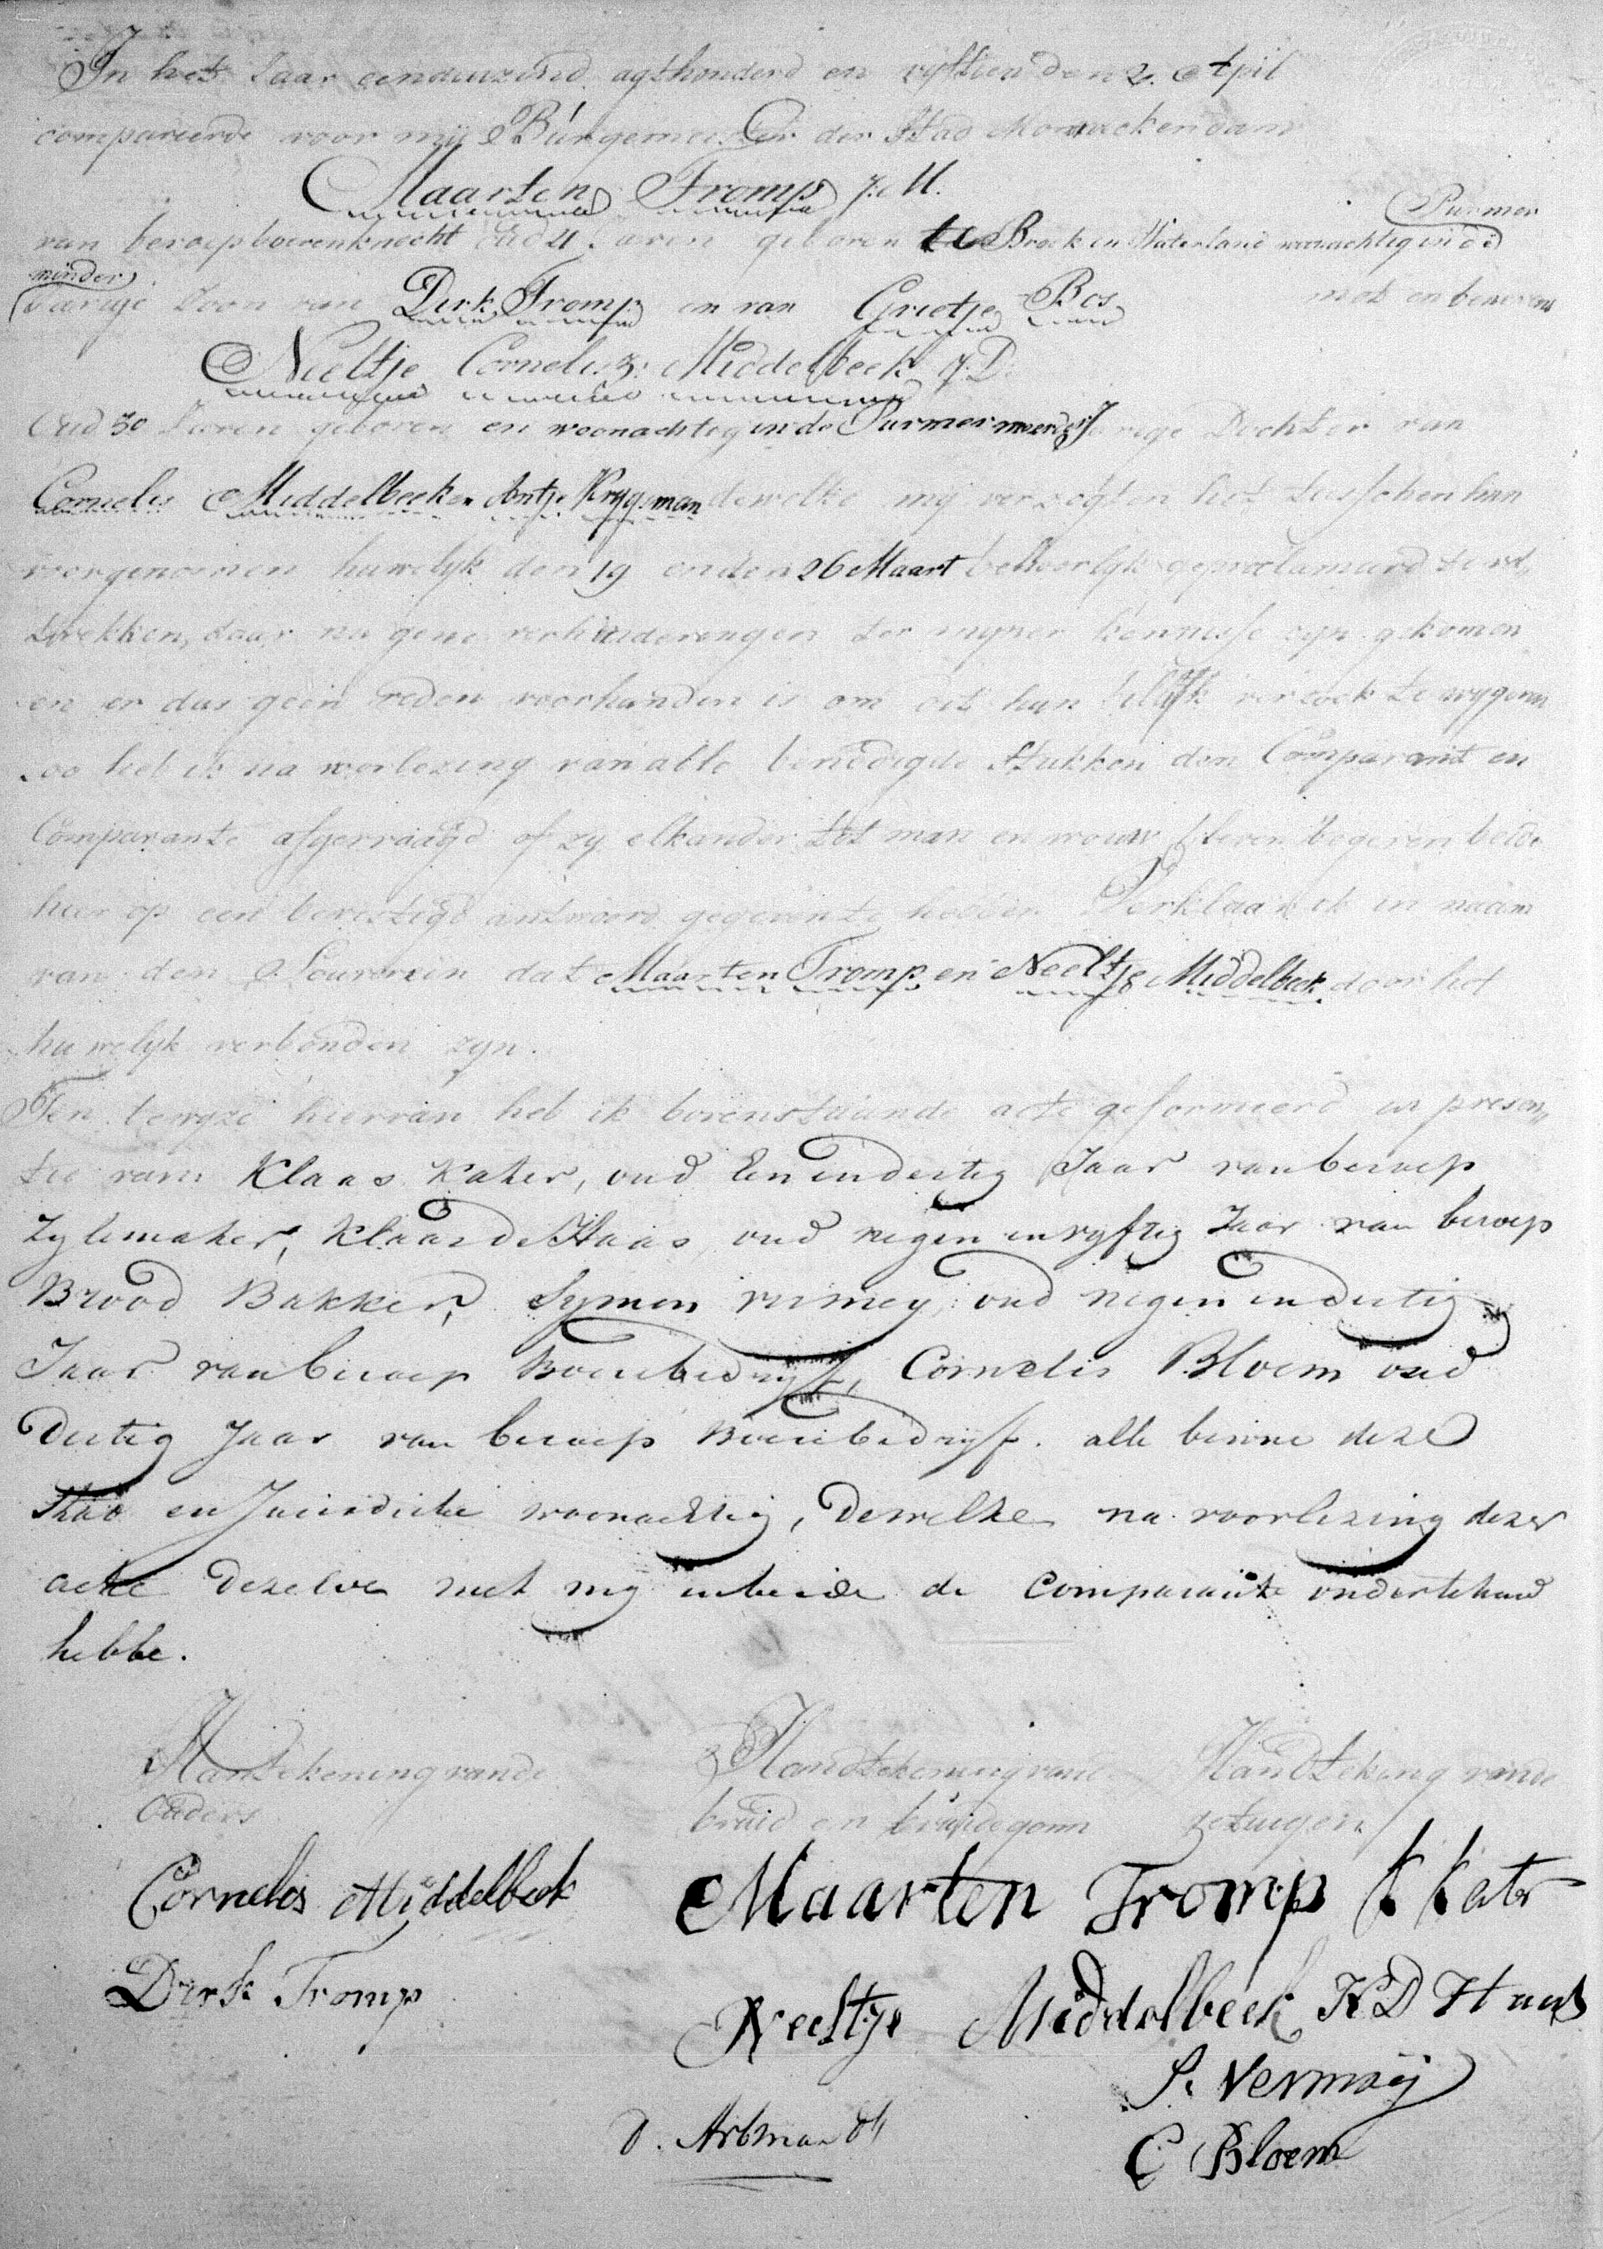 In het Jaar eenduizend agthonderd en vyftien den 2. April
compareerde voor mij Burgemeester der Stad Monnickendam
Maarten Tromp J:M.
Purmer
van beroep boerenknecht Oud 21 Jaren geboren te Broek in Waterland woonachtig in de
minder
Jarige Zoon van Dirk Tromp en van Grietje Bos met en benevens
Neeltje Cornelis Middelbeek J:D.
Oud 30 Jaren geboren en woonachtig in de Purmer meerder Jarige Dochter van
Cornelis Middelbeek en Antje Krygsman dewelke mij verzogten het tusschen hun
voorgenomen huwelyk den 19 en den 26 Maart behoorlyk geproclameerd te vol,,
trekken, daar nu gene verhinderingen ter myner kennisse zyn gekomen
en er dus geen reden voorhanden is om dit hun billyk verzoek te wygeren
zoo heb ik na voorlezing van alle benodigde Stukken den Comparant en
Comparante afgevraagd of zy elkander tot man en vrouw begeren beide
hier op een bevestigd antwoord gegeven te hebben Verklaar ik in naam
van den Souverein dat Maarten Tromp en Neeltje Middelbeek door het
huwelyk verbonden zyn.
Ten bewyze hiervan heb ik bovenstaande acte geformeerd in presen,,
tie van Klaas Kater, oud Een en dertig Jaar van beroep
Zylemaker, Klaas de Haas, oud negen en vyftig Jaar van beroep
Brood Bakker, Symen vermey, oud negen en dertig
Jaar van beroep Boerebedryf, Cornelis Bloem oud
Dertig Jaar van beroep Boerebedryf. alle binne deze
Stad en Juridictie woonachtig, Dewelke na voorlezing dezer
acte dezelve met my en beide de Comparante ondertekend
hebbe.
Handtekening van de Handtekening van de Handtekening van de
Ouders bruid en bruidegom getuigen
Cornelis Middelbeek Maarten Tromp K Kater
Dirk Tromp Neeltje Middelbeek K D Haas
S. Vermeij
C Bloem